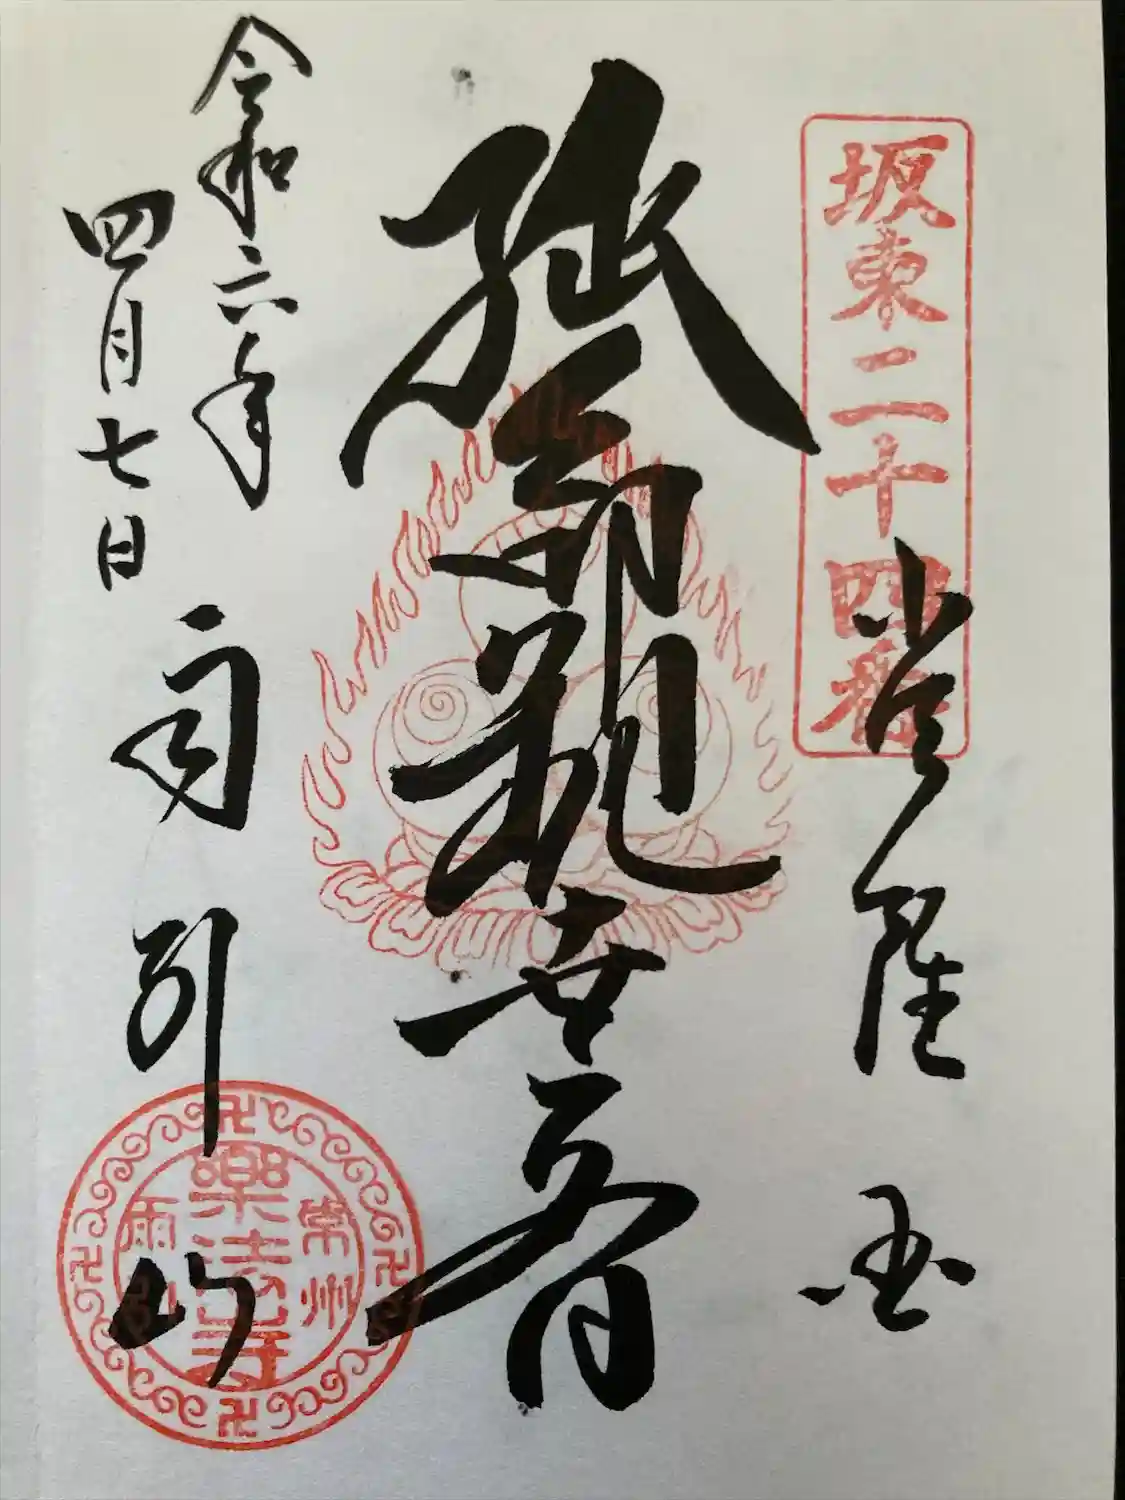 坂東二十四番
常陸国
延命観世音
令和六年
四月七日
雨引山
常州
樂法寺
雨引